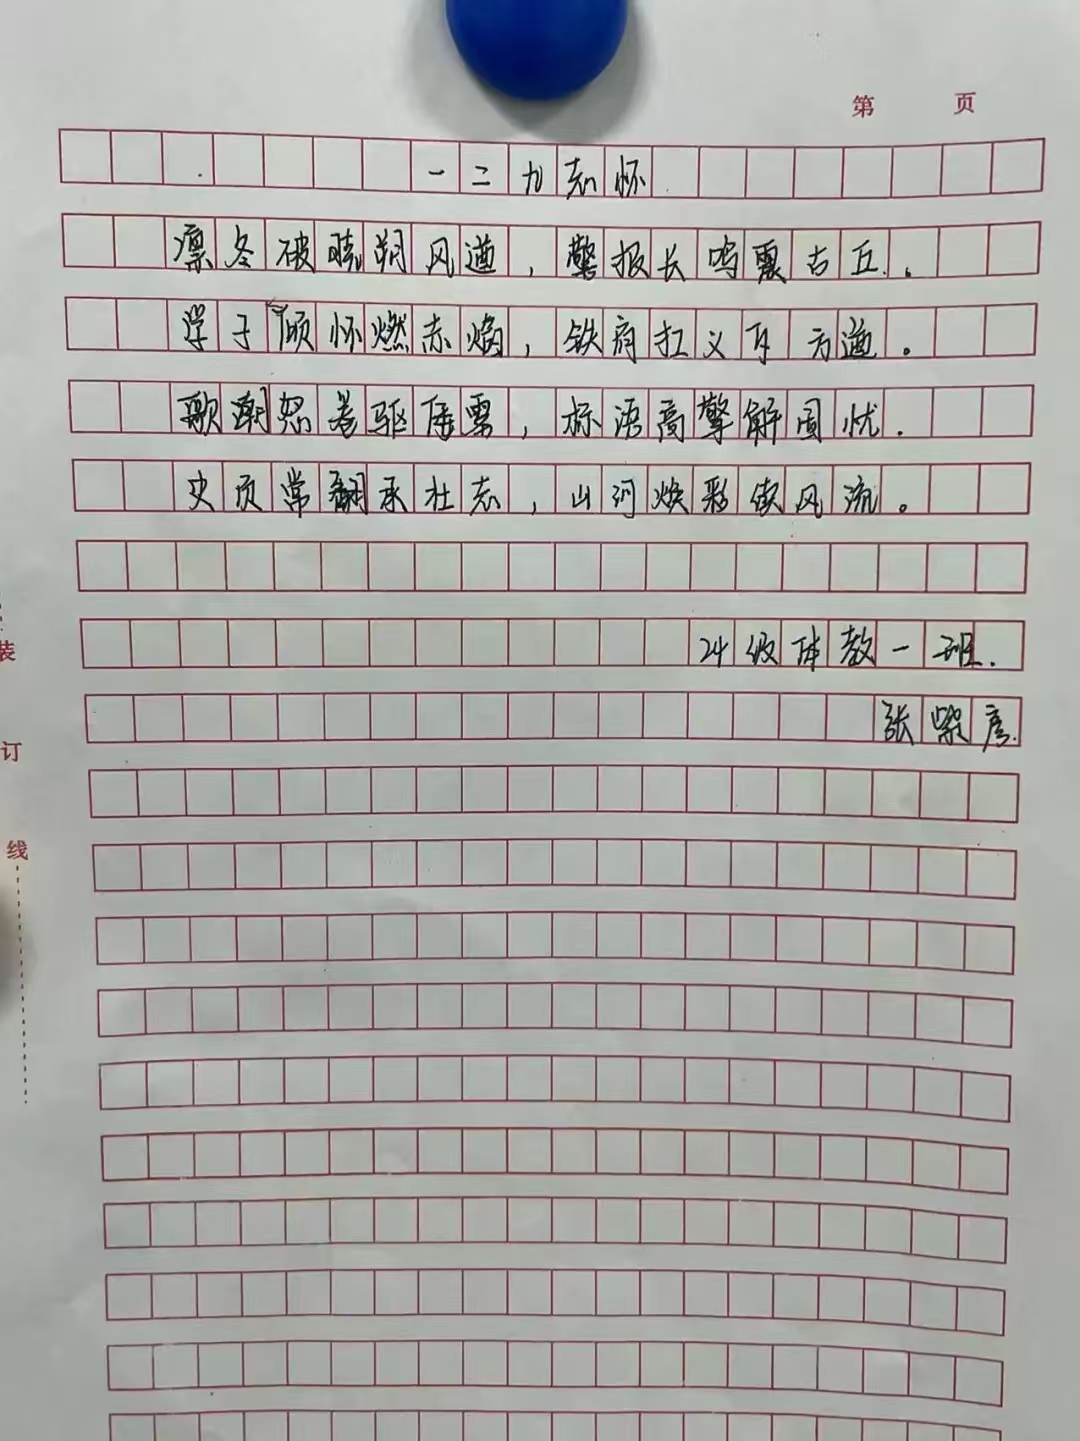 第 页
一二九志怀
凛冬破晓朔风遒，警报长鸣震古丘。
学子倾怀燃赤焰，铁肩扛义万遒。
歌潮怒卷驱霾，标语高擎解国忧.
史页常翻承壮志，山河焕彩续风流。
24级体教一班.
张紫彦.
装
订
线